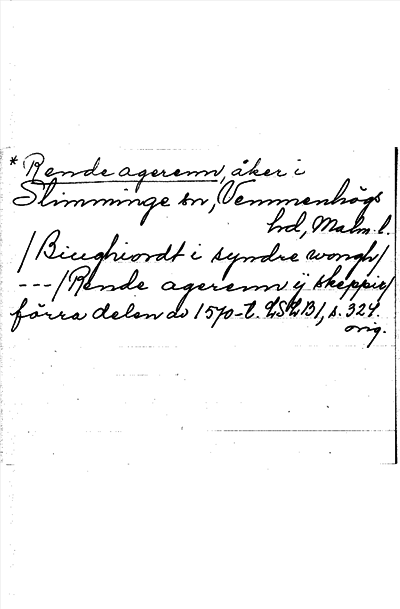 * Rende agerenn, åker i
Slimminge sn, Vemmenhögs
hd, Malm. l.
/Biughiordt i syndre wongh/
---/Rende agerenn ij skeppier/
förra delen av 1570-t. LSLB1, s. 324.
orig.